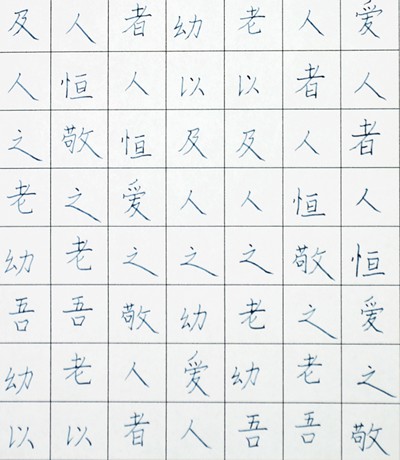 爱人者人恒爱之敬
人者人恒敬之老吾
老以及人之老幼吾
幼以及人之幼爱人
者人恒爱之敬人者
人恒敬之老吾老以
及人之老幼吾幼以